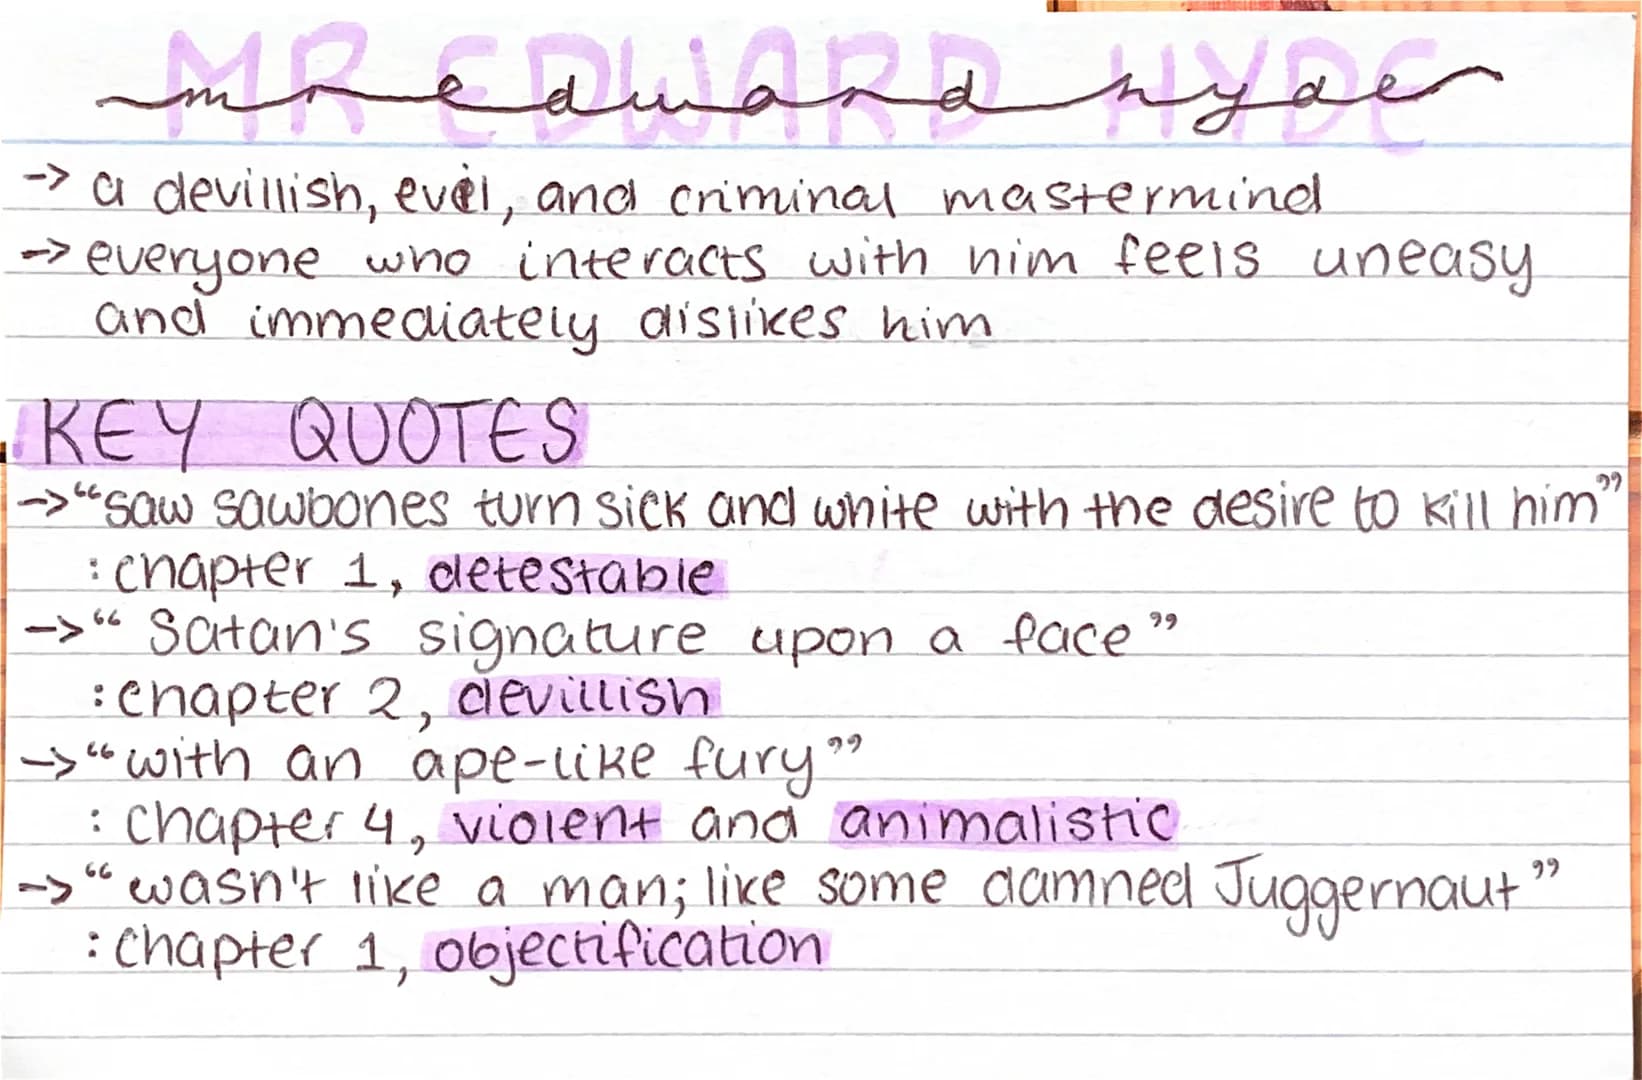 MR EDWARD HYDE
mr edward hyde
-> a devillish, evil, and criminal mastermind
-> everyone who interacts with him feels uneasy
and immediately dislikes him
KEY QUOTES
-> “saw sawbones turn sick and white with the desire to kill him”
: chapter 1, detestable
-> “Satan's signature upon a face”
: chapter 2, devillish
-> “with an ape-like fury”
: chapter 4, violent and animalistic
-> “wasn't like a man; like some damned Juggernaut”
: chapter 1, objectification